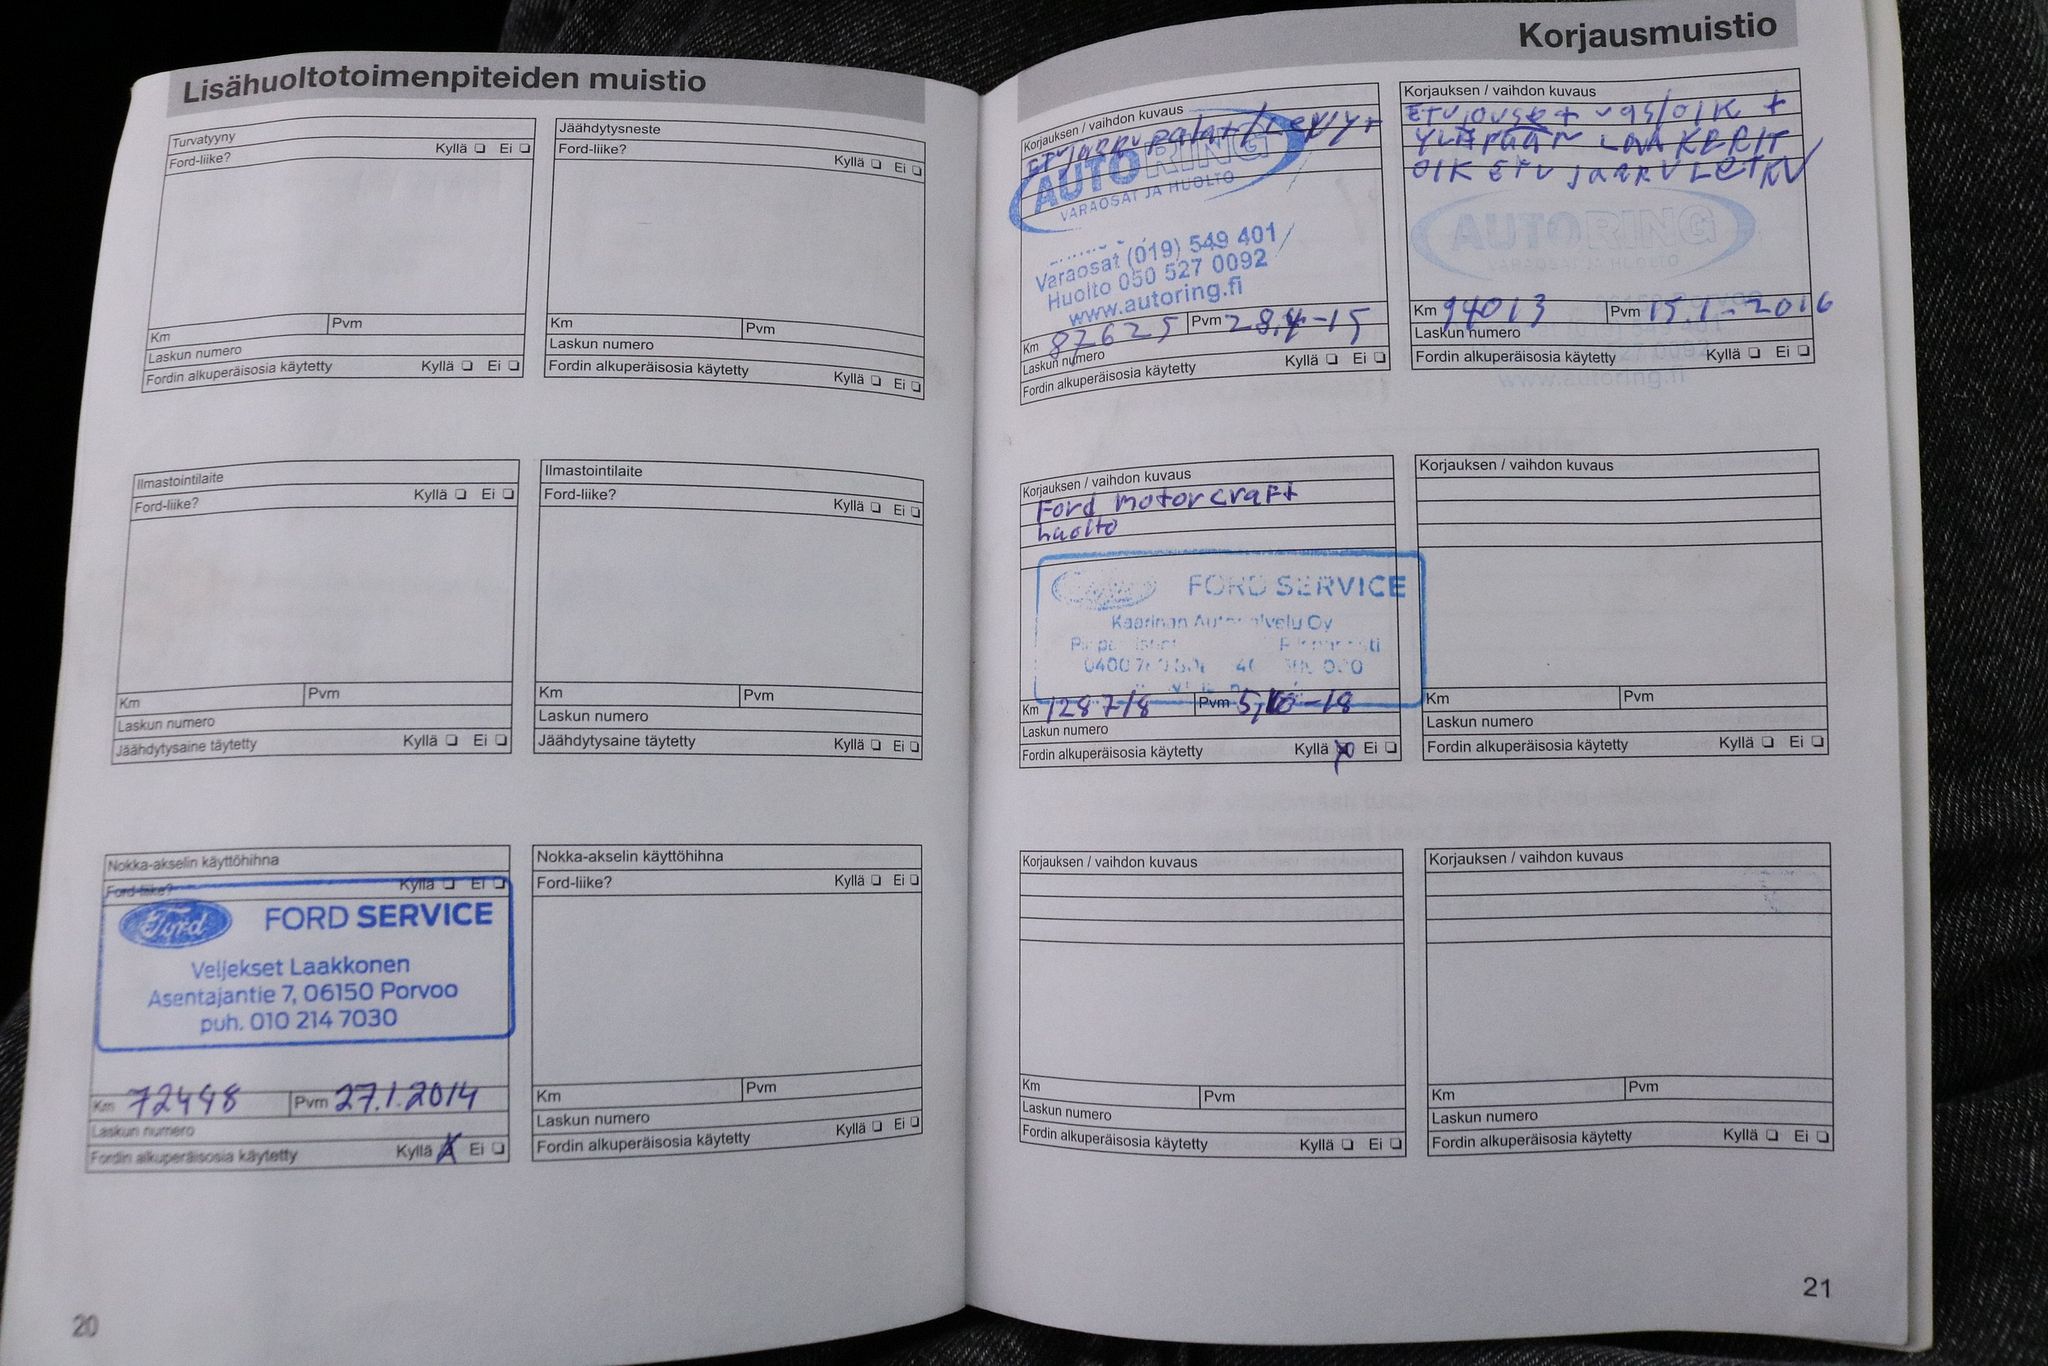 Lisähuoltotoimenpiteiden muistio
Turvatyyny
Ford-liike? Kyllä ❏ Ei ❏
Km Pvm
Laskun numero
Fordin alkuperäisosia käytetty Kyllä ❏ Ei ❏
Jäähdytysneste
Ford-liike? Kyllä ❏ Ei ❏
Km Pvm
Laskun numero
Fordin alkuperäisosia käytetty Kyllä ❏ Ei ❏
Ilmastointilaite
Ford-liike? Kyllä ❏ Ei ❏
Km Pvm
Laskun numero
Jäähdytysaine täytetty Kyllä ❏ Ei ❏
Ilmastointilaite
Ford-liike? Kyllä ❏ Ei ❏
Km Pvm
Laskun numero
Jäähdytysaine täytetty Kyllä ❏ Ei ❏
Nokka-akselin käyttöhihna
Ford-liike? Kyllä ❏ Ei ❏
Ford FORD SERVICE
Veljekset Laakkonen
Asentajantie 7, 06150 Porvoo
puh. 010 214 7030
Km 72448 Pvm 27.1.2014
Laskun numero
Fordin alkuperäisosia käytetty Kyllä ❏ Ei ❏
Nokka-akselin käyttöhihna
Ford-liike? Kyllä ❏ Ei ❏
Km Pvm
Laskun numero
Fordin alkuperäisosia käytetty Kyllä ❏ Ei ❏
20
Korjausmuistio
Korjauksen / vaihdon kuvaus
AUTORING
VARAOSAT JA HUOLTO
Varaosat (019) 549 401
Huolto 050 527 0092
www.autoring.fi
Km 87625 Pvm 28.4-15
Laskun numero
Fordin alkuperäisosia käytetty Kyllä ❏ Ei ❏
Korjauksen / vaihdon kuvaus
ETUJOUSET VAS/OIK +
YLÄPÄÄN LAAKERIT
OIK ETU JARRULETKU
AUTORING
VARAOSAT JA HUOLTO
Km 94013 Pvm 15.1-2016
Laskun numero
527 0092
Fordin alkuperäisosia käytetty Kyllä ❏ Ei ❏
www.autoring.fi
Korjauksen / vaihdon kuvaus
Ford motorcraft
huolto
FORD SERVICE
Kaarinan Oy
Km 128718 Pvm 5.10-18
Laskun numero
Fordin alkuperäisosia käytetty Kyllä ❏ Ei ❏
Korjauksen / vaihdon kuvaus
Km Pvm
Laskun numero
Fordin alkuperäisosia käytetty Kyllä ❏ Ei ❏
Korjauksen / vaihdon kuvaus
Km Pvm
Laskun numero
Fordin alkuperäisosia käytetty Kyllä ❏ Ei ❏
Korjauksen / vaihdon kuvaus
Km Pvm
Laskun numero
Fordin alkuperäisosia käytetty Kyllä ❏ Ei ❏
21